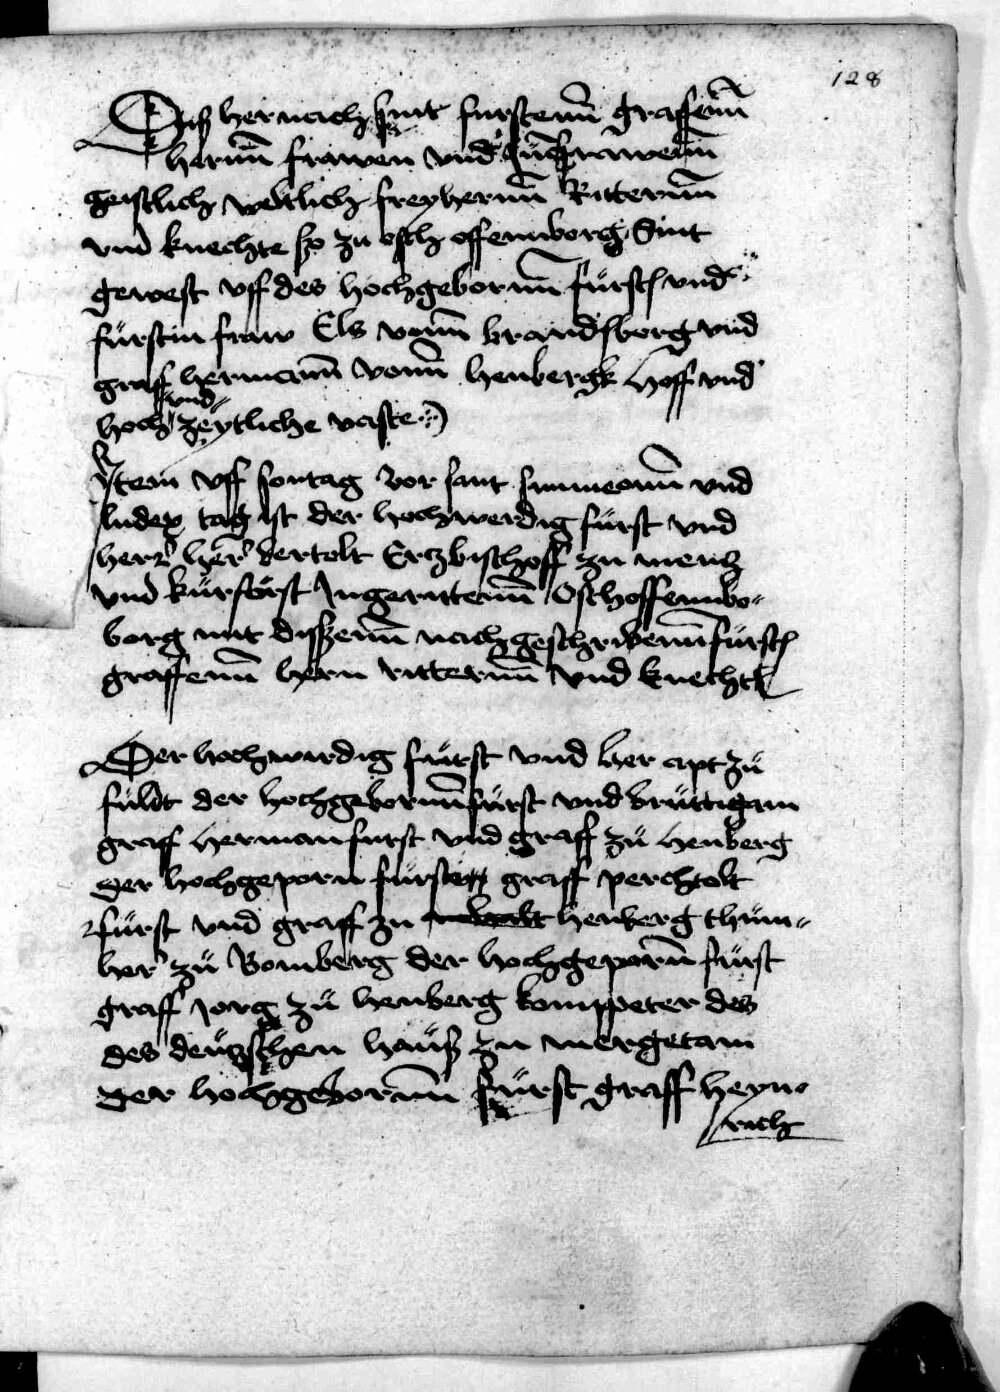 128
Diß hernach sint furstenn graffenn
hernn frawen vnd Junckfrawenn
geistlich wertlich freyhernn Ritternn
vnd knechte so zu osch offennborg Sint
gewest vff des hochgebornn fürsten vnd
fürstin fraw Els vonn brandsborg vnd
graff hermann vonn henbergk hoff vnd
hoch vnd zeytliche vaste
Item vff sontag vor sant simmeonn vnd
Judex tag ist der hochwerdig fürst vnd
herr her bertolt Ertzbischoff zu mentz
vnd kürfürst Ingerittenn Oschoffennbo-
borg mit dissenn nachgeschribenn fürsten
graffenn hern ritternn vnd knechten
Der hochwirdig fürst vnd her apt zü
füldt der hochgebornn fürst vnd brüttigam
graff herman furst vnd graff zü henberg
der hochgeporn fürsten graff perchtolt
fürst vnd graff zu henberg thüm-
her zü Bomberg der hochgepornn fürst
graff Jorg zü henberg kompeter des
des deützschen haüß zu mergetam
der hochgebornn fürst graff heyn-
rich